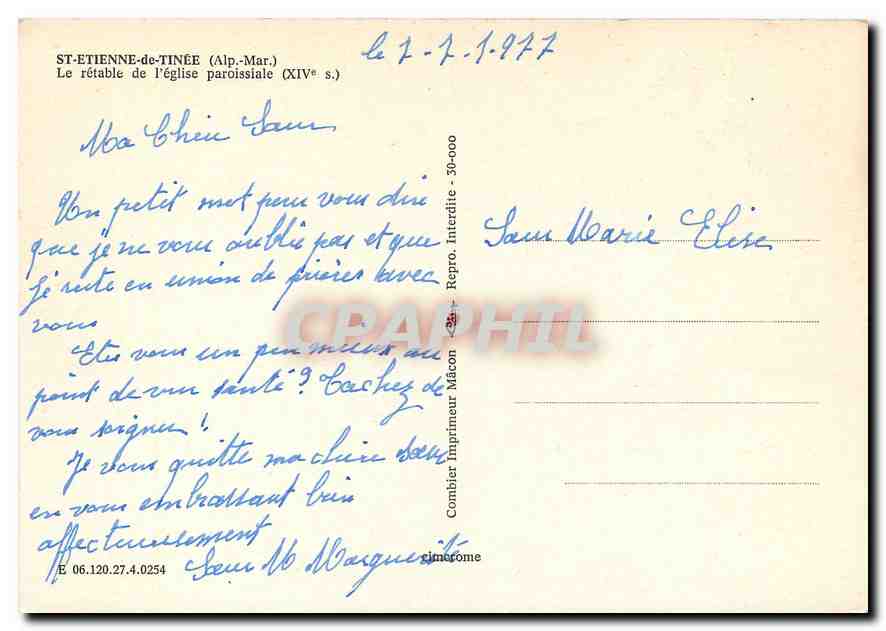 ST-ETIENNE-de-TINÉE (Alp.-Mar.)
Le rétable de l'église paroissiale (XIVe s.)
le 7-7-1977
Ma Chère Sœur
Un petit mot pour vous dire
que je ne vous oublie pas et que
je reste en union de prières avec
vous
Etes vous un peu mieux au
point de vue santé ? Tachez de
vous soigner !
Je vous quitte ma chère Sœur
en vous embrassant bien
affectueusement
Sœur M Marguerite
E 06.120.27.4.0254
cimcrome
Combier Imprimeur Mâcon - Repro. Interdite - 30-000
Sœur Marie Elise
CPAPHIL